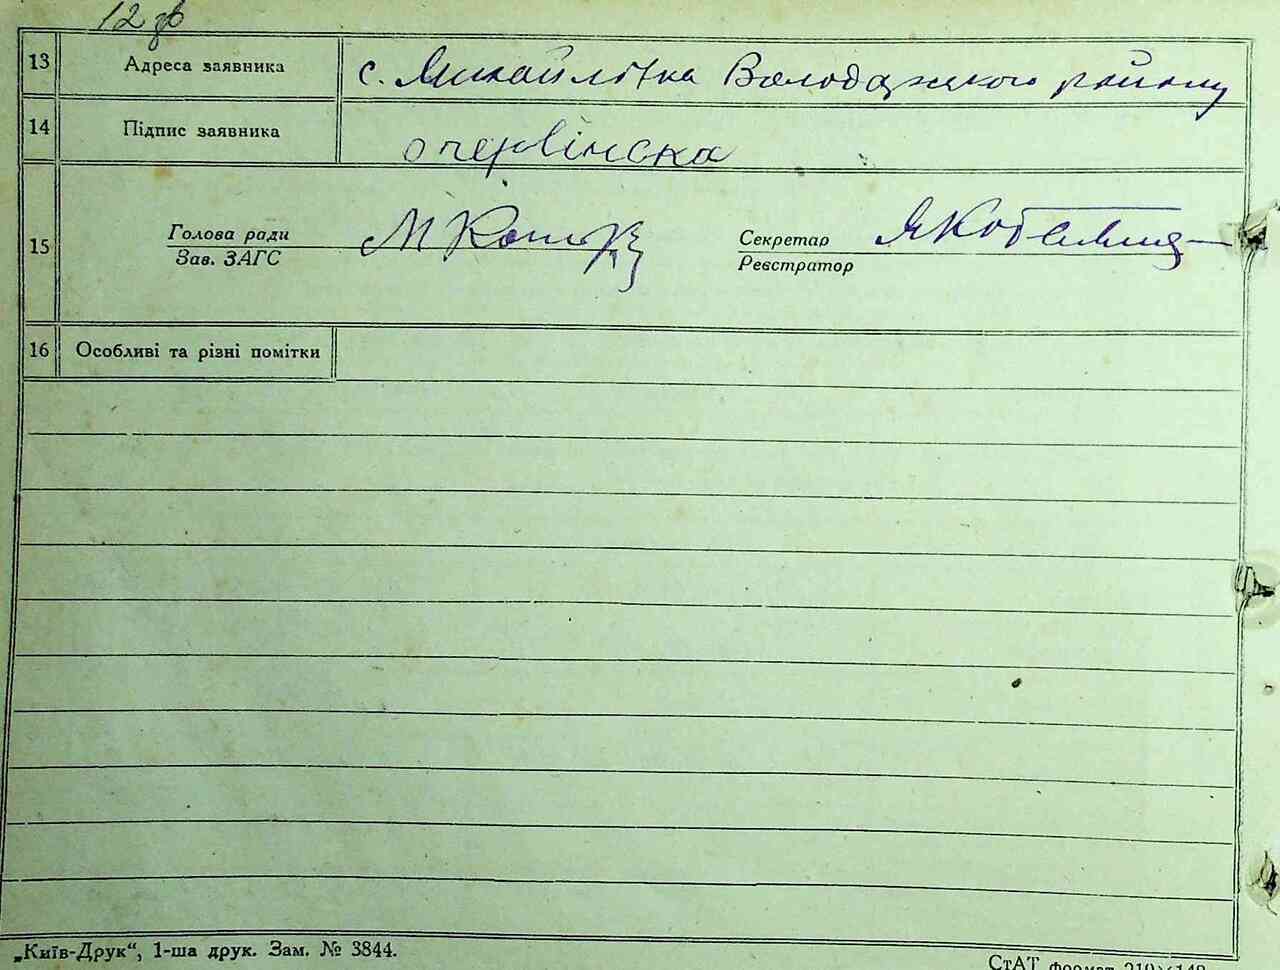 12 зв
13 Адреса заявника с. Михайлівка Володарського району
14 Підпис заявника о червінска
15 Голова ради М Секретар
Зав. ЗАГС Реєстратор
16 Особливі та різні помітки
„Київ-Друк“, 1-ша друк. Зам. № 3844.
СтАТ формат 210×148